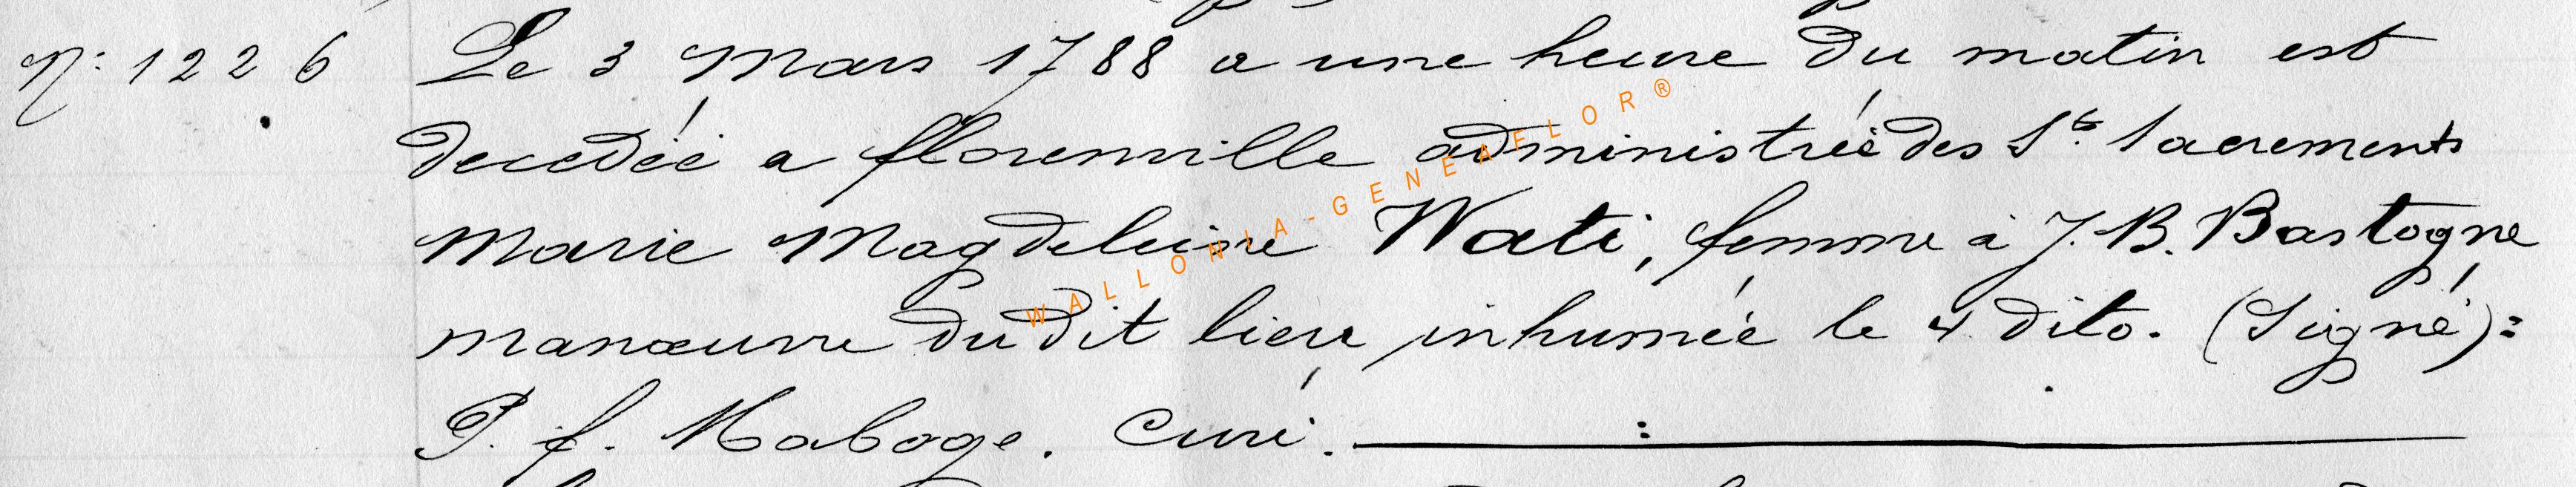 N: 1226 Le 3 Mars 1788 a une heure du matin est
decedéé a florenville administréé des Sts Sacrements
Marie Magdeleine Wati, femme à J. B. Bastogne
manœuvre du dit lieu inhuméé le 4 dito. (Signé):
P. f. Maboge. Curé.
WALLONIA-GENEAFLOR®